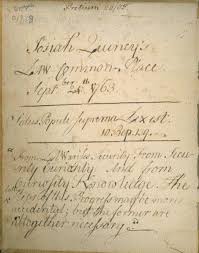 Josiah Quincy's
Law Common-Place
Sept. 1763.
Salus Populi Suprema Lex est.
10. Rep. 139.
"From Law arises Security, From Secu-
rity Curiosity And from
Curiosity Knowledge. The
of this Progress may be more
accidental; but the former are
altogether necessary"